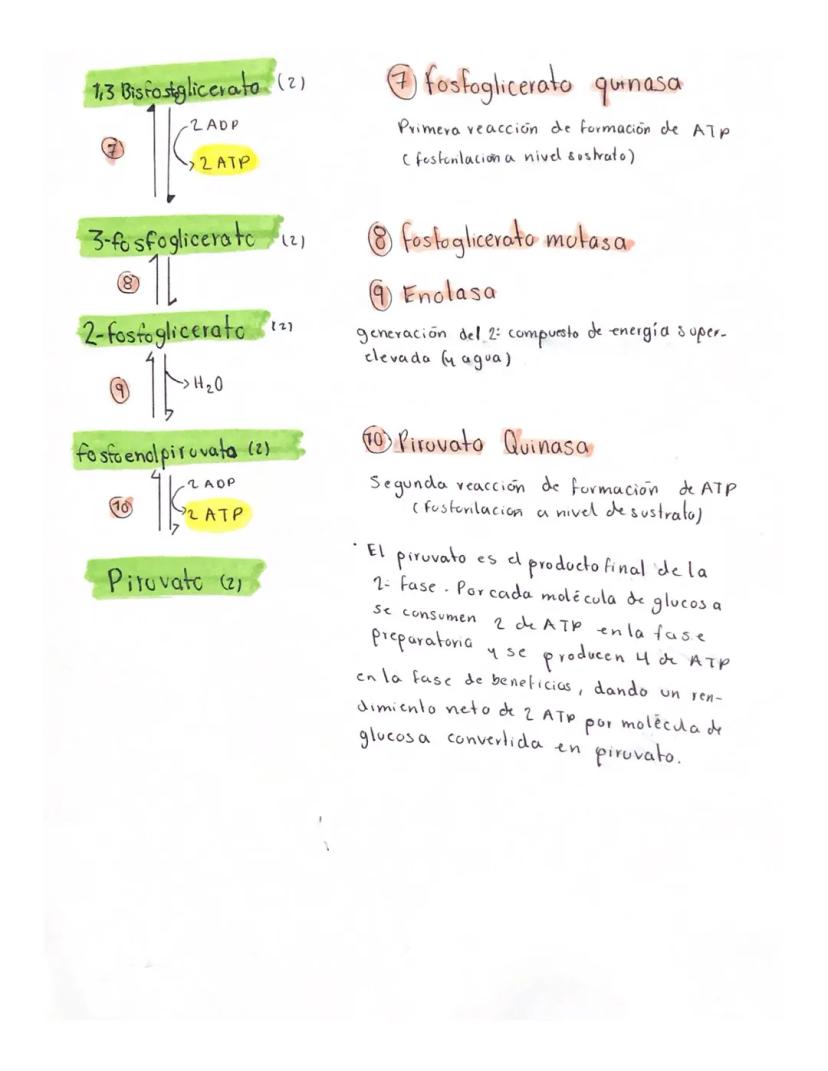 1,3 Bisfosfglicerato (2)
2 ADP
7
2 ATP
3-fosfoglicerato (2)
8
2-fosfoglicerato (2)
9
H₂O
fosfoenolpiruvato (2)
2 ADP
10
2 ATP
Piruvato (2)
7 fosfoglicerato quinasa
Primera reacción de formación de ATP
(fosforilacion a nivel sustrato)
8 fosfoglicerato mutasa
9 Enolasa
generación del 2º compuesto de energía super-
elevada (y agua)
10 Piruvato Quinasa
Segunda reacción de formación de ATP
(fosforilacion a nivel de sustrato)
· El piruvato es el producto final de la
2º fase. Por cada molécula de glucosa
se consumen 2 de ATP en la fase
preparatoria y se producen 4 de ATP
en la fase de beneficios, dando un ren-
dimiento neto de 2 ATP por molécula de
glucosa convertida en piruvato.